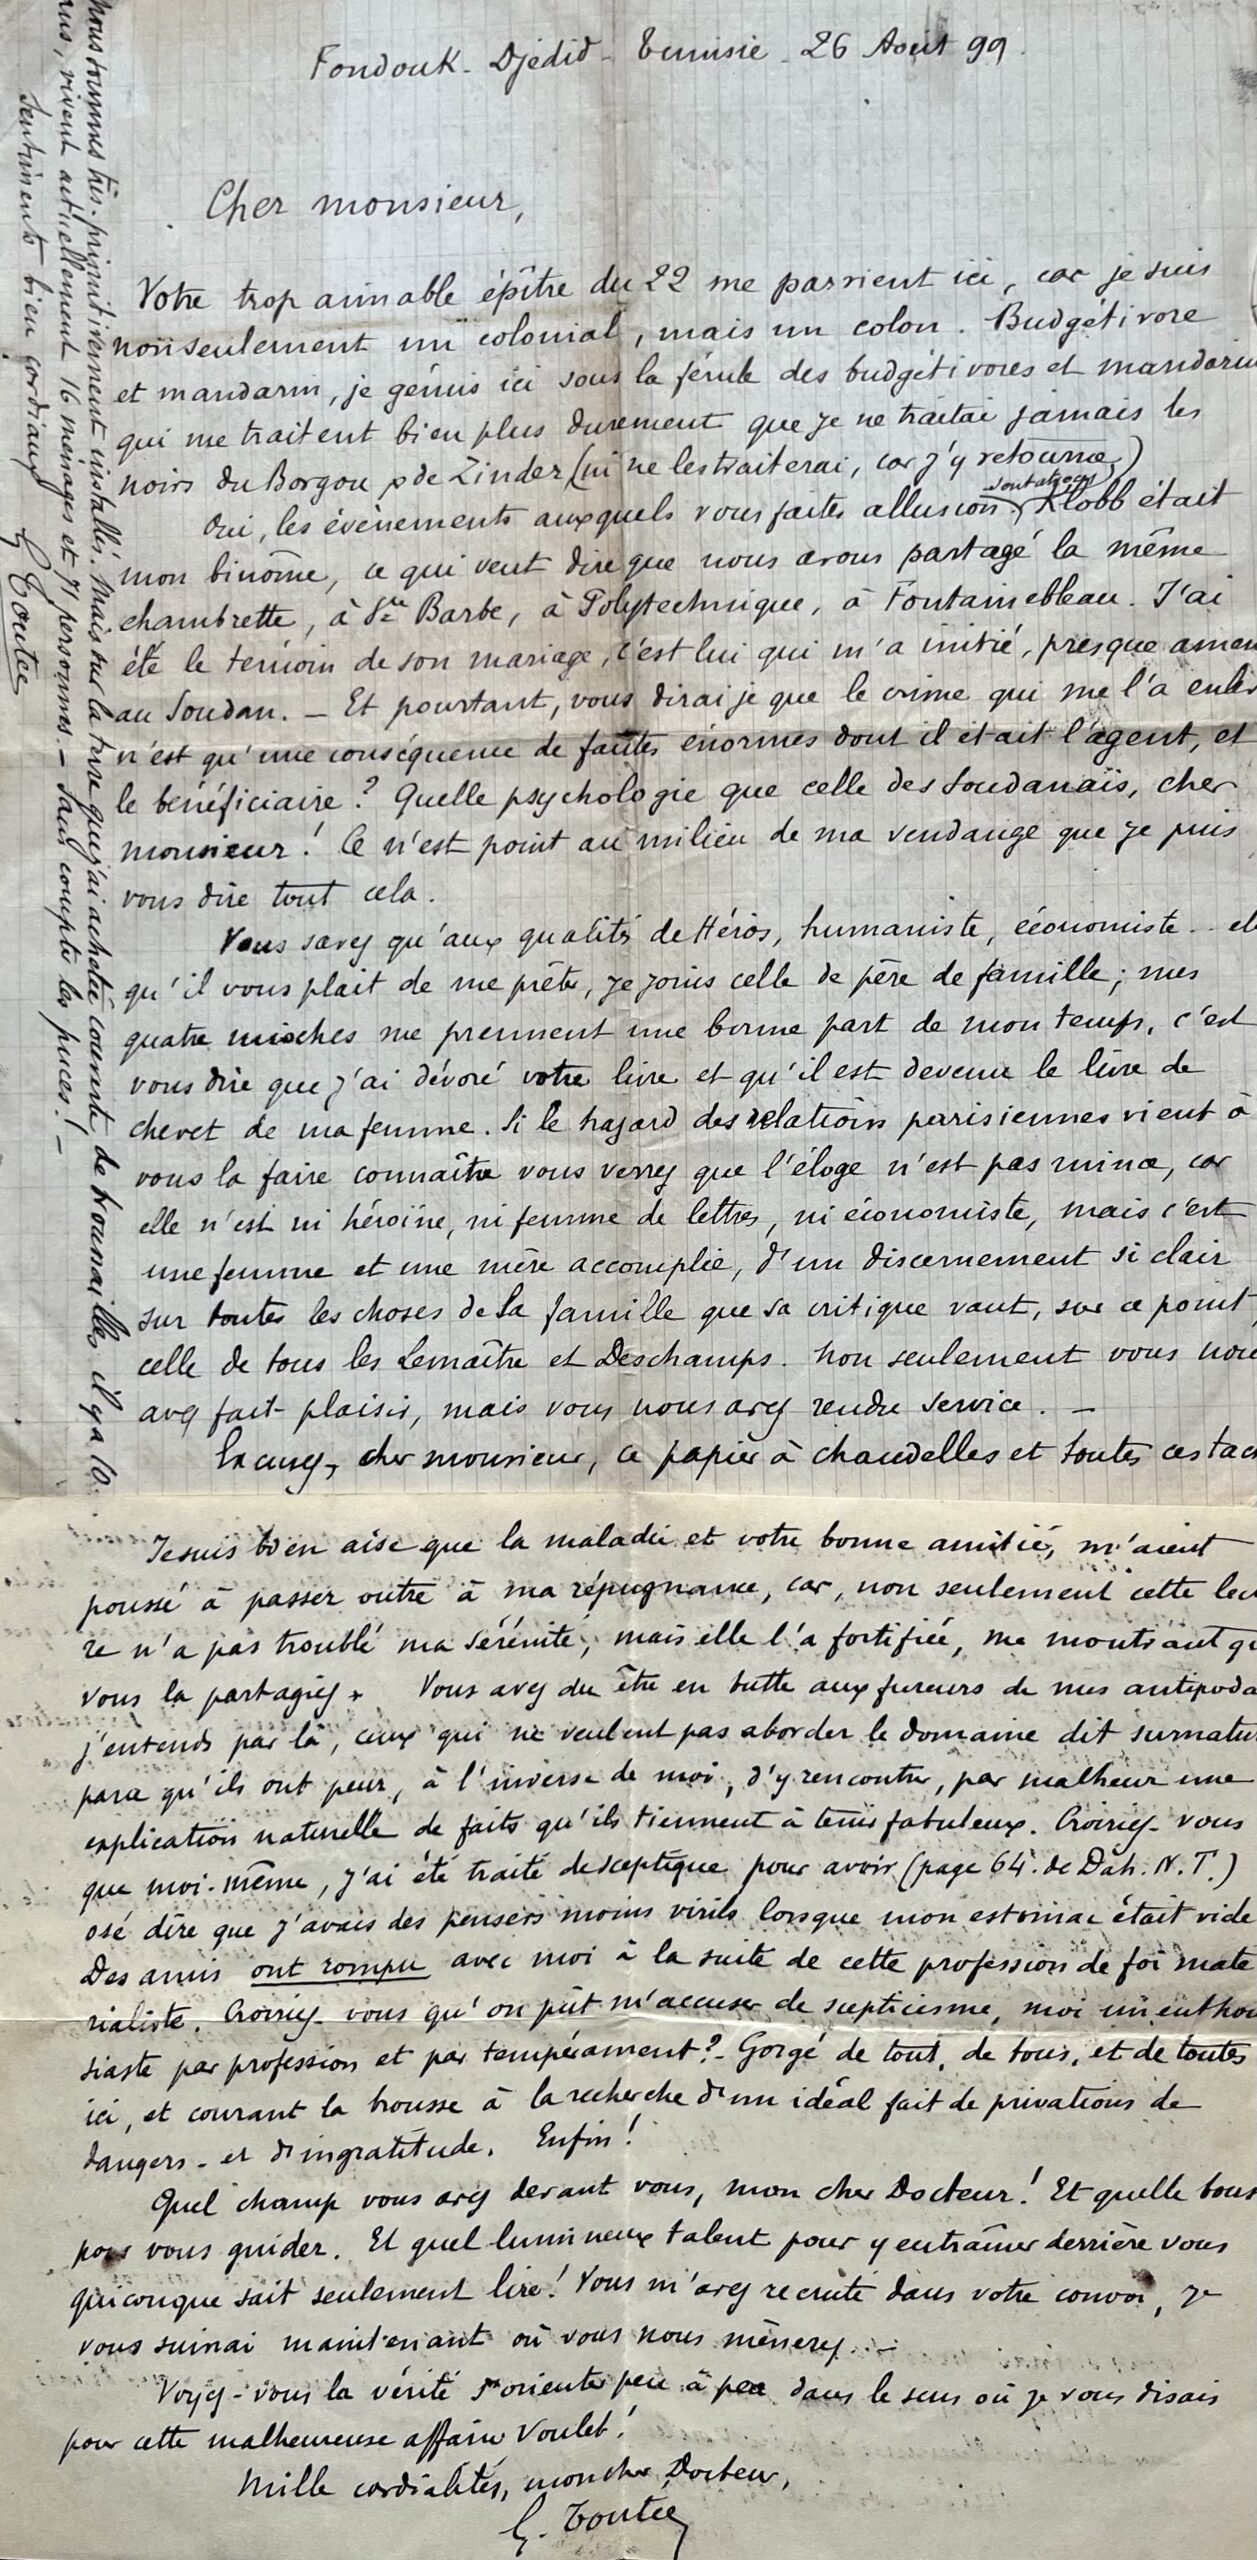 Fondouk-Djedid - Tunisie - 26 Août 99.
Cher monsieur,
Votre trop aimable épître du 22 me parvient ici, car je suis
nonseulement un colonial, mais un colon. Budgétivore
et mandarin, je gémis ici sous la férule des budgétivores et mandarin
qui me traitent bien plus durement que je ne traitai jamais les
noirs du Borgou & de Zinder (ni ne les traiterai, car j'y retourne)
Oui, les évènements auxquels vous faites allusion sont atroces, Klobb était
mon binôme, ce qui veut dire que nous avons partagé la même
chambrette, à Ste Barbe, à Polytechnique, à Fontainebleau. J'ai
été le témoin de son mariage, c'est lui qui m'a initié, presque amen
au Soudan. — Et pourtant, vous dirai je que le crime qui me l'a enlev
n'est qu'une conséquence de fautes énormes dont il était l'agent, et
le bénéficiaire ? Quelle psychologie que celle des Soudanais, cher
monsieur ! Ce n'est point au milieu de ma vendange que je puis
vous dire tout cela.
Vous savez qu'aux qualités de Héros, humaniste, économiste.. et
qu'il vous plait de me prêter, je joins celle de père de famille ; mes
quatre mioches me prennent une bonne part de mon temps, c'est
vous dire que j'ai dévoré votre livre et qu'il est devenu le livre de
chevet de ma femme. Si le hazard des relations parisiennes vient à
vous la faire connaître vous verrez que l'éloge n'est pas mince, car
elle n'est ni héroïne, ni femme de lettres, ni économiste, mais c'est
une femme et une mère accomplie, d'un discernement si clair
sur toutes les choses de la famille que sa critique vaut, sur ce point,
celle de tous les Lemaître et Deschamps. Non seulement vous nou
avez fait plaisir, mais vous nous avez rendu service. —
Excusez, cher monsieur, ce papier à chandelles et toutes ces tach
nous sommes très primitivement installés. Mais sur la terre que j'ai achetée couverte de broussailles il y a 10
ans, vivent actuellement 16 ménages et 71 personnes. — Sans compter les puces ! —
Sentiments bien cordiaux
G Toutée
Je suis bien aise que la maladie et votre bonne amitié, m'aient
poussé à passer outre à ma répugnance, car, non seulement cette lectu
re n'a pas troublé ma sérénité, mais elle l'a fortifiée, me montrant qu
vous la partagiez. Vous avez du être en butte aux fureurs de mes antipoda
j'entends par là, ceux qui ne veulent pas aborder le domaine dit surnatur
parce qu'ils ont peur, à l'inverse de moi, d'y rencontrer, par malheur une
explication naturelle de faits qu'ils tiennent à tenir fabuleux. Croiriez-vous
que moi-même, j'ai été traité de sceptique pour avoir (page 64. de Dah. N. T.)
osé dire que j'avais des pensers moins virils lorsque mon estomac était vide
Des amis ont rompu avec moi à la suite de cette profession de foi maté
rialiste. Croiriez-vous qu'on pût m'accuser de scepticisme, moi un enthou
siaste par profession et par tempérament ? - Gorgé de tout, de tous, et de toutes
ici, et courant la brousse à la recherche d'un idéal fait de privations de
dangers - et d'ingratitude. Enfin !
Quel champ vous avez devant vous, mon cher Docteur ! Et quelle bous
pour vous guider. Et quel lumineux talent pour y entraîner derrière vous
quiconque sait seulement lire ! Vous m'avez recruté dans votre convoi, je
vous suivrai maintenant où vous nous mènerez. —
Voyez-vous la vérité s'orienter peu à peu dans le sens où je vous disais
pour cette malheureuse affaire Voulet !
Mille cordialités, mon cher Docteur,
G. Toutée